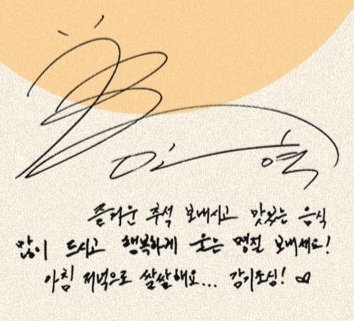 즐거운 추석 보내시고 맛있는 음식
많이 드시고 행복하게 웃는 명절 보내세요!
아침 저녁으로 쌀쌀해요... 감기조심! ♡